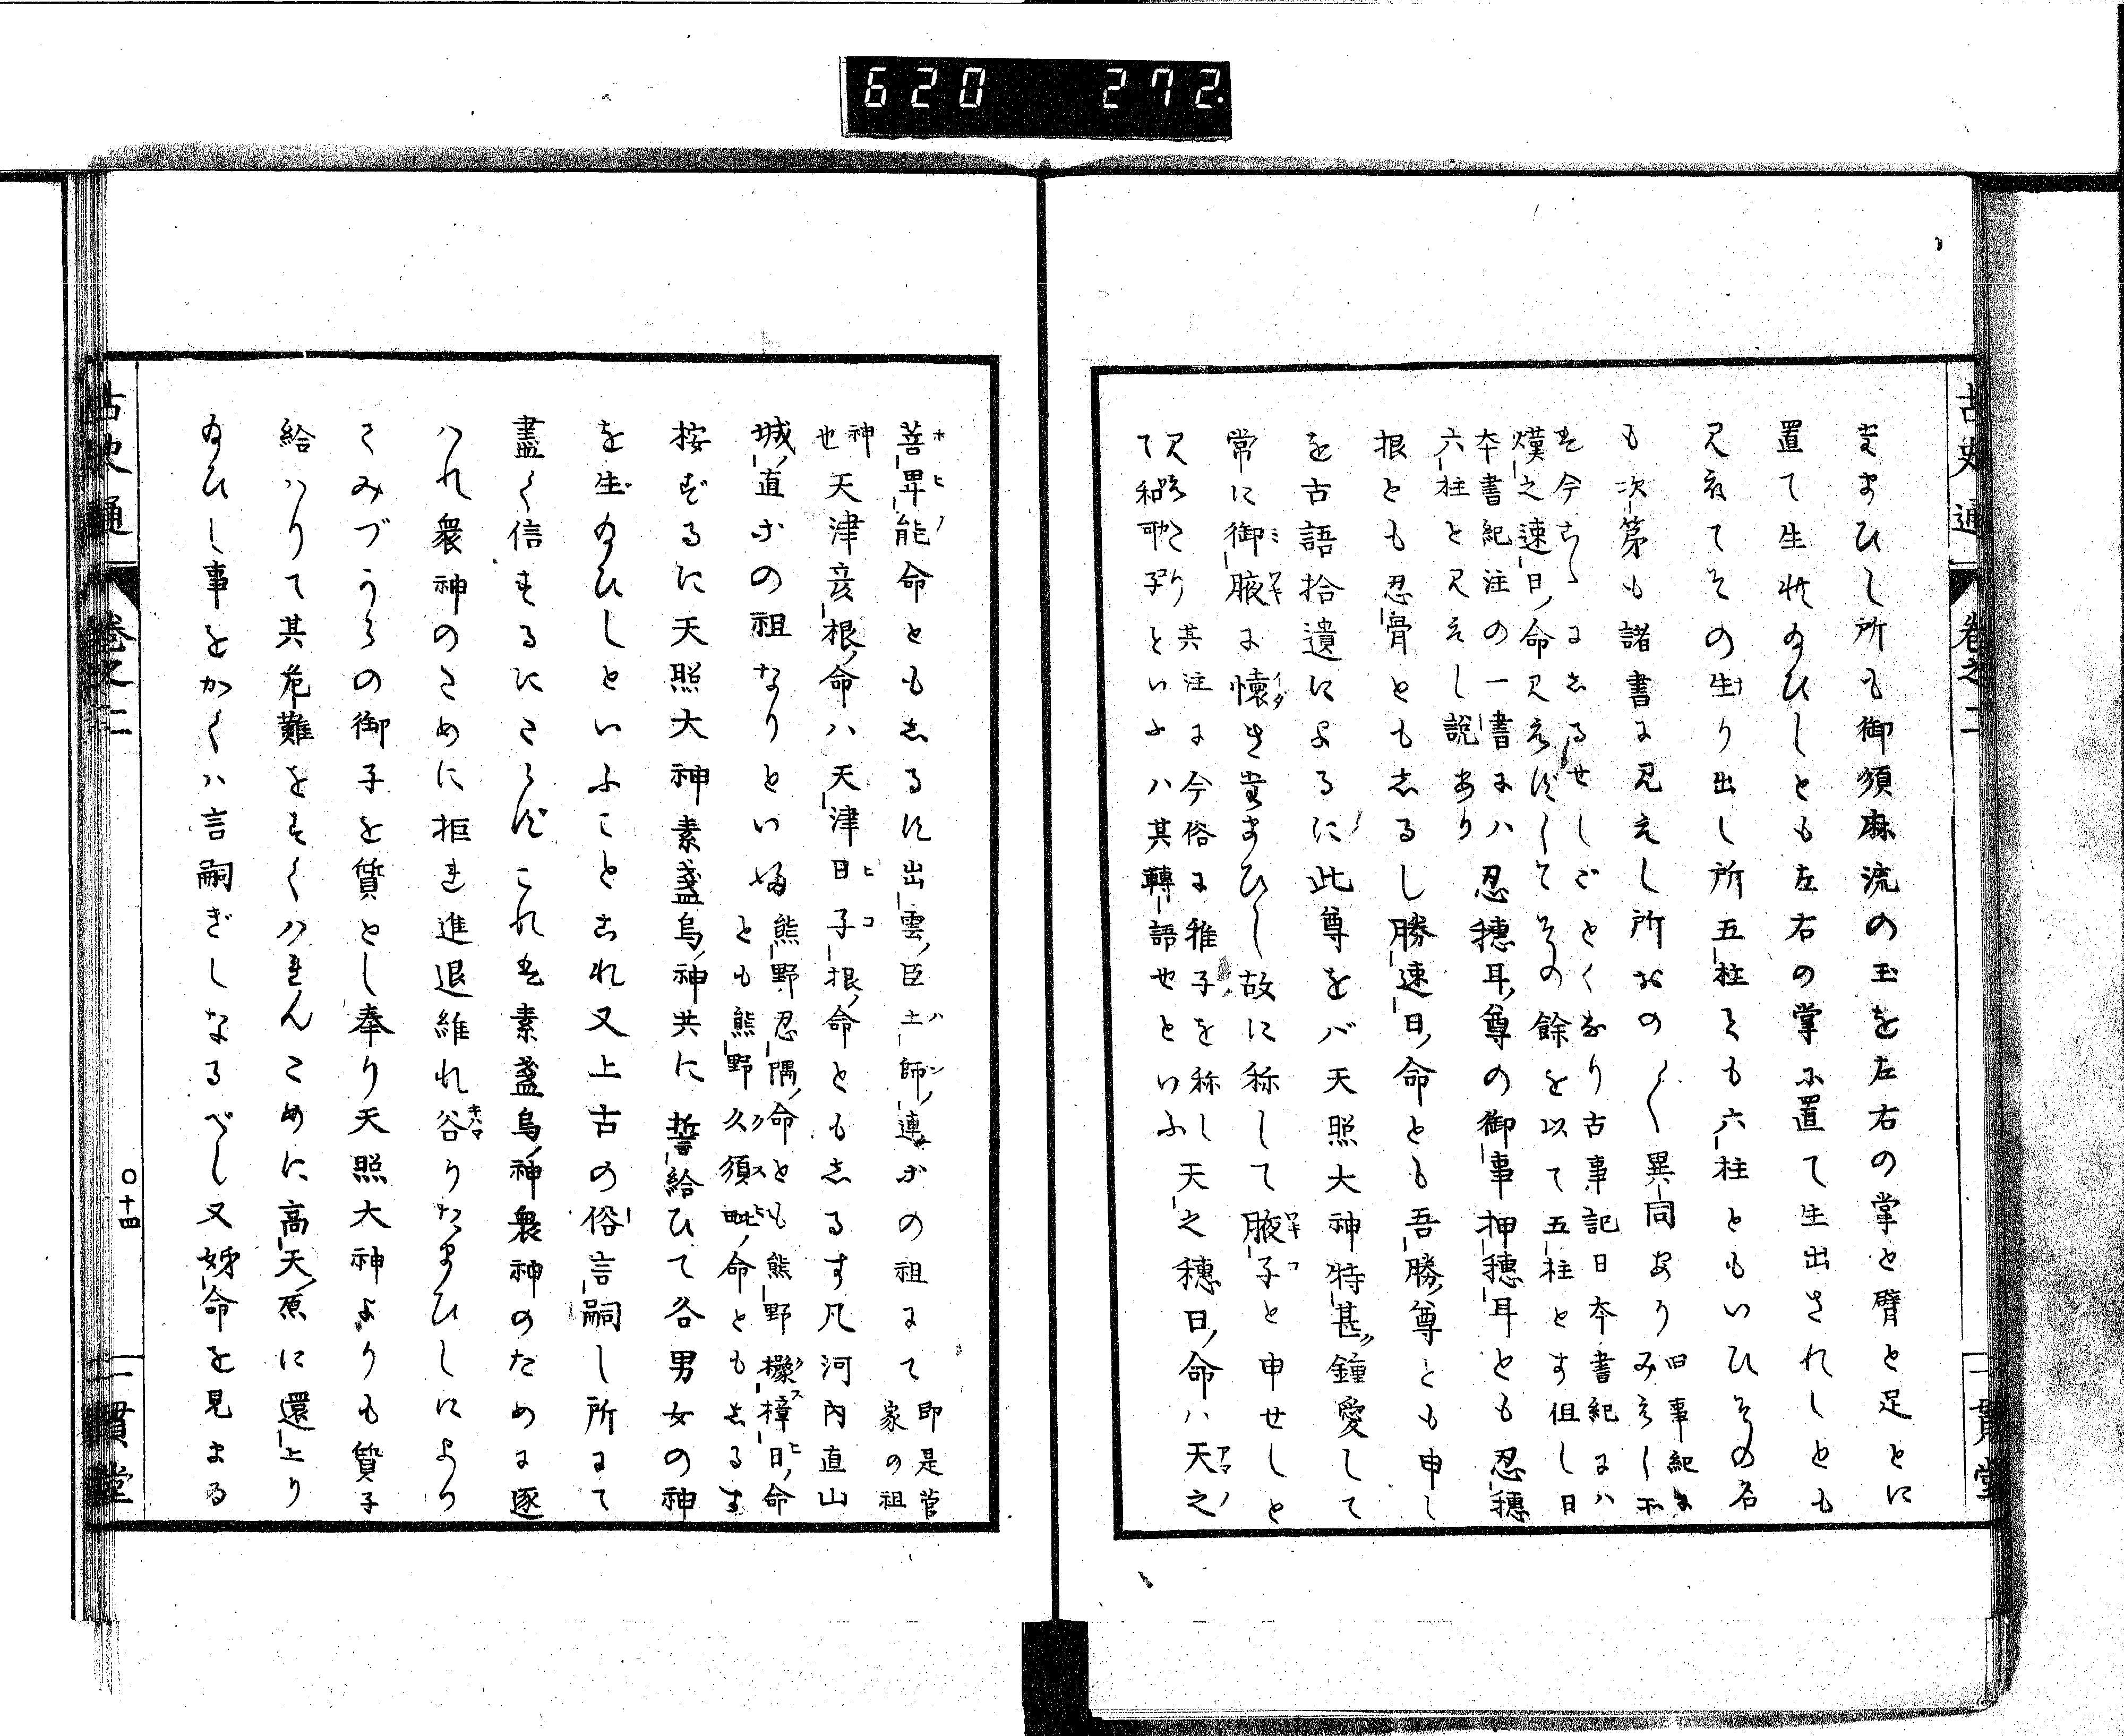 620 272.
古史通 卷之二 一貫堂
たまひし所も御須麻流の玉を左右の掌と臂と足とに
置て生れ給ひしとも左右の掌に置て生出されしとも
見えてその生り出し所五柱とも六柱ともいひその名
も次第も諸書に見えし所おの〱異同あり
旧事紀に
みえし所
を今こゝにしるせしごとくなり古事記日本書紀にハ
熯之速日命見えずしてその餘を以て五柱とす但し日
本書紀注の一書にハ忍穗耳尊の御事押穗耳とも忍穗
六柱と見えし説あり
根とも忍骨ともしるし勝速日命とも吾勝尊とも申し
を古語拾遺によるに此尊をバ天照大神特甚鐘愛して
常に御腋に懐きたまひし故に称して腋子と申せしと
其注に今俗に稚子を称し
て和可子といふハ其轉語也といふ
天之穗日命ハ天之
菩卑能命ともしるす出雲臣土師連等の祖にて
即是菅
家の祖
神
也
天津彦根命ハ天津日子根命ともしるす凡河内直山
城直等の祖なりといふ
熊野忍隅命とも熊野櫲樟日命
とも熊野久須毗命ともしるす
按ずるに天照大神素盞烏神共に誓給ひて各男女の神
を生給ひしといふことこれ又上古の俗言嗣し所にて
盡く信ずるにたらずこれ素盞烏神衆神のために逐
はれ衆神のために拒れ進退維れ谷りたまひしにより
てみづからの御子を質とし奉り天照大神よりも質子
給ハりて其危難をすくハれんために高天原に還上り
給ひし事をかくハ言嗣ぎしなるべし又姉命を見まる
古史通 卷之二 〇十四 一貫堂